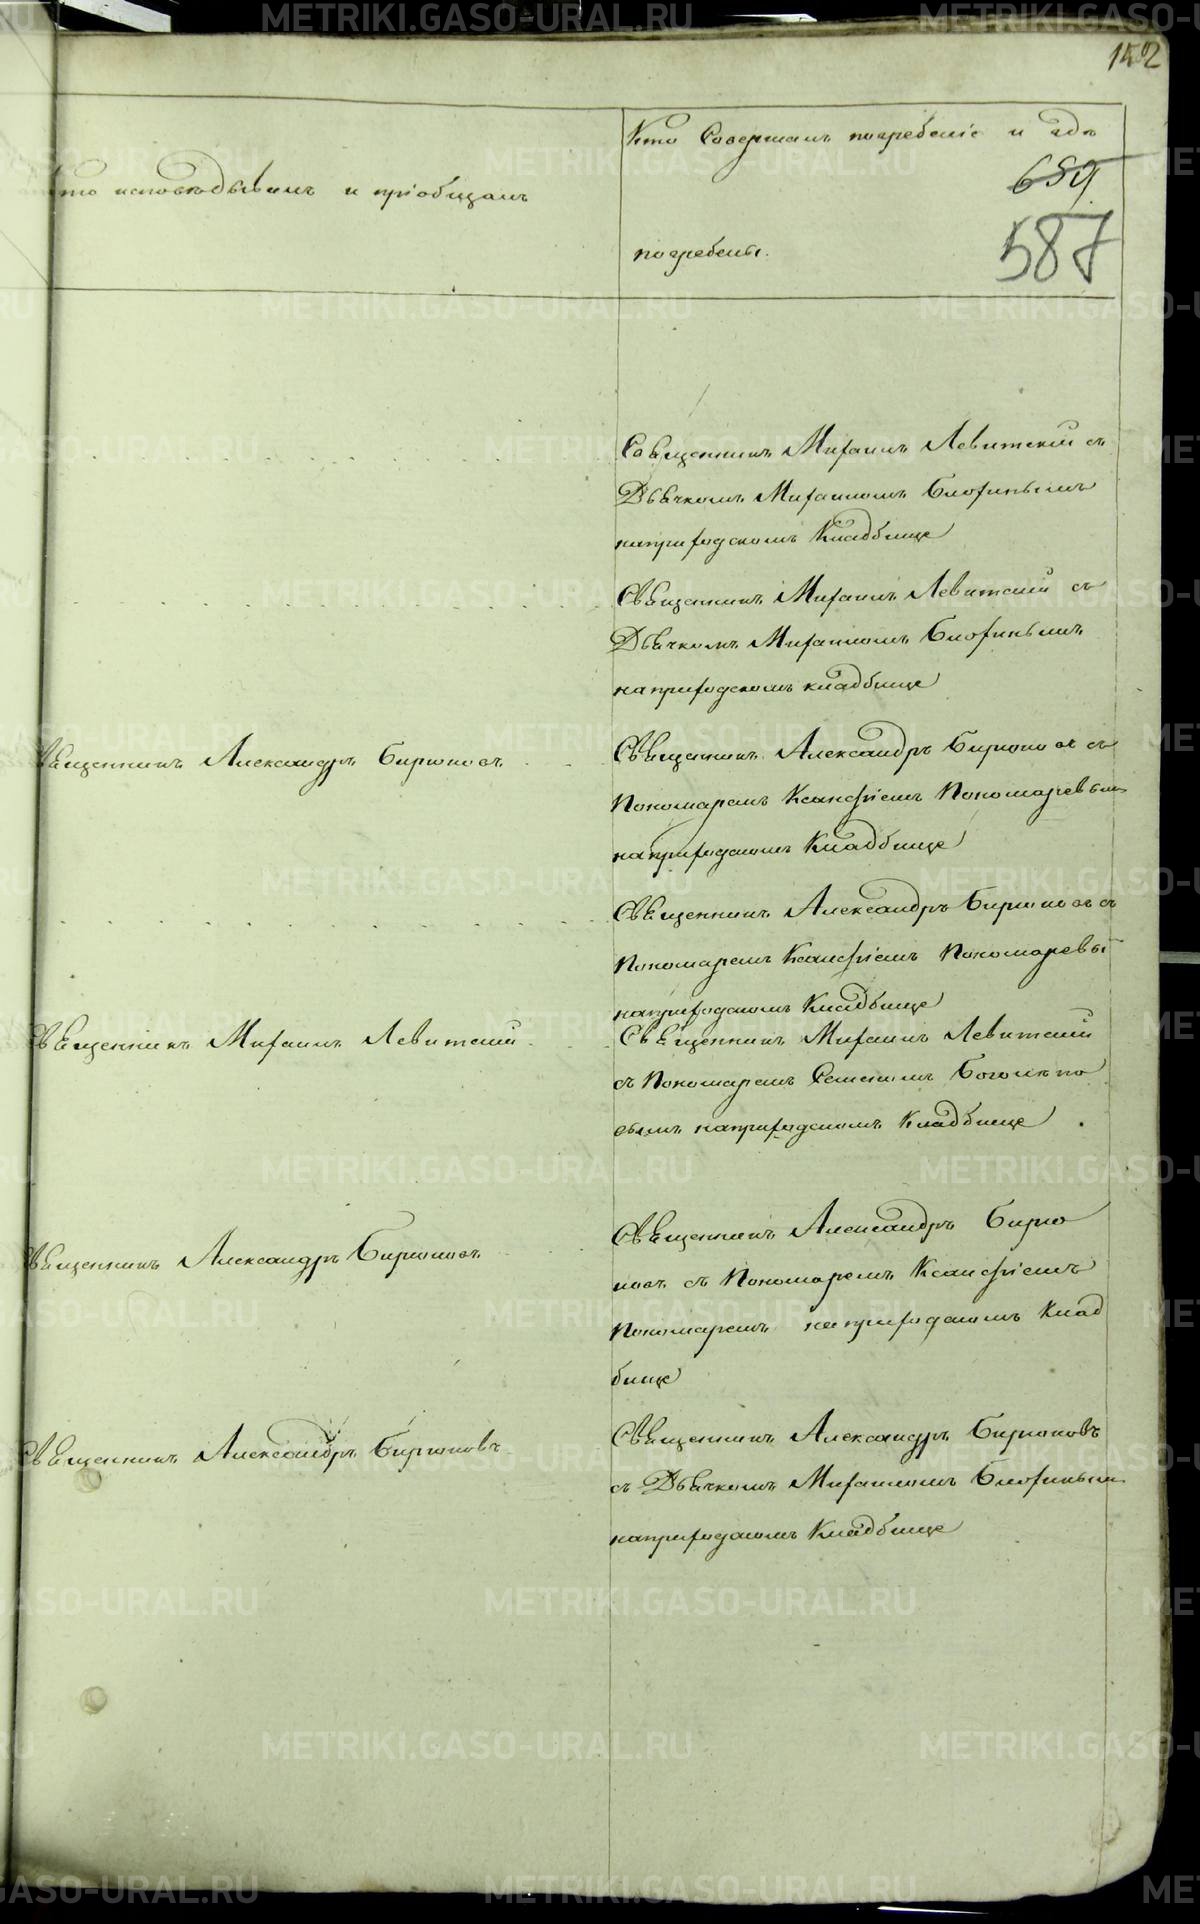 152
Кто Совершалъ погребенiе и гдѣ
659
587
погребены.
кто исповѣдывалъ и прiобщалъ
Священникъ Михаилъ Левитскiй съ
Дьячкомъ Михаиломъ
на приходскомъ Кладбище
Священникъ Михаилъ Левитскiй съ
Дьячкомъ Михаиломъ
на приходскомъ кладбище
Священникъ Александръ Бирюковъ
Священникъ Александръ Бирюковъ съ
Пономаремъ Ксанфiемъ Пономаревым
на приходскомъ Кладбище
Священникъ Александръ Бирюковъ съ
Пономаремъ Ксанфiемъ Пономаревы
на приходскомъ Кладбище
Священникъ Михаилъ Левитскiй
Священникъ Михаилъ Левитскiй
съ Пономаремъ Семеномъ Боголѣпо
вымъ на приходскомъ Кладбище
Священникъ Александръ Бирюковъ
Священникъ Александръ Бирю
ковъ съ Пономаремъ Ксанфiемъ
Пономаремъ на приходскомъ Клад
бище
Священникъ Александръ Бирюковъ
Священникъ Александръ Бирюковъ
съ Дьячкомъ Михаиломъ
на приходскомъ Кладбище
METRIKI.GASO-URAL.RU